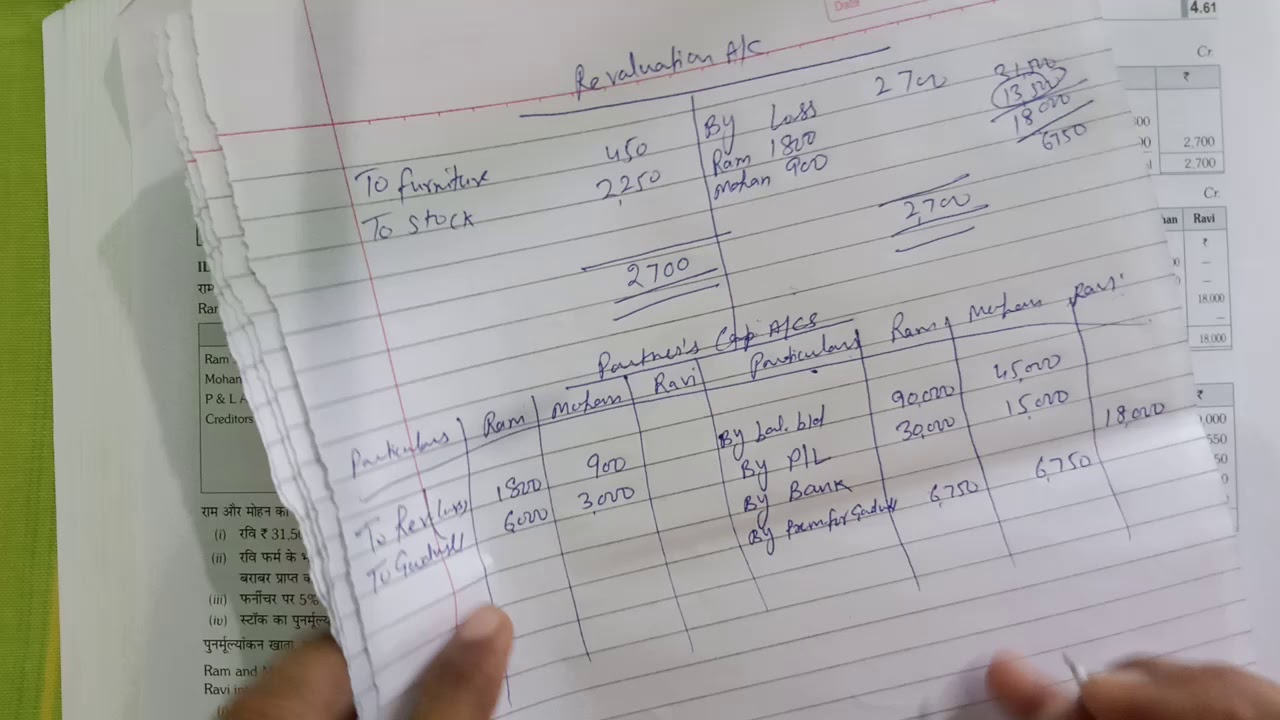 Date
4.61
Cr.
₹
Revaluation A/C
To furniture 450
To Stock 2,250
2700
By Loss 2700
Ram 1800
Mohan 900
2,700
31,500
13,500
18000
6750
00
2,700
2,700
Cr.
an Ravi
₹
–
–
18,000
–
18,000
₹
,000
550
50
Partner's Cap A/Cs
Particulars Ram Mohan Ravi Particulars Ram Mohan Ravi
By bal. b/d 90,000 45,000
To Rev Loss 1800 900 By P/L 30,000 15,000
To Goodwill 6,000 3,000 By Bank 18,000
By Prem for Goodwill 6,750 6,750
IL
राम
Ram
Mohan
P & L A
Creditors
राम और मोहन का
(i) रवि ₹ 31,50
(ii) रवि फर्म के
बराबर प्राप्त क
(iii) फर्नीचर पर 5%
(iv) स्टॉक का पुनर्मूल्य
पुनर्मूल्यांकन खाता
Ram and M
Ravi in